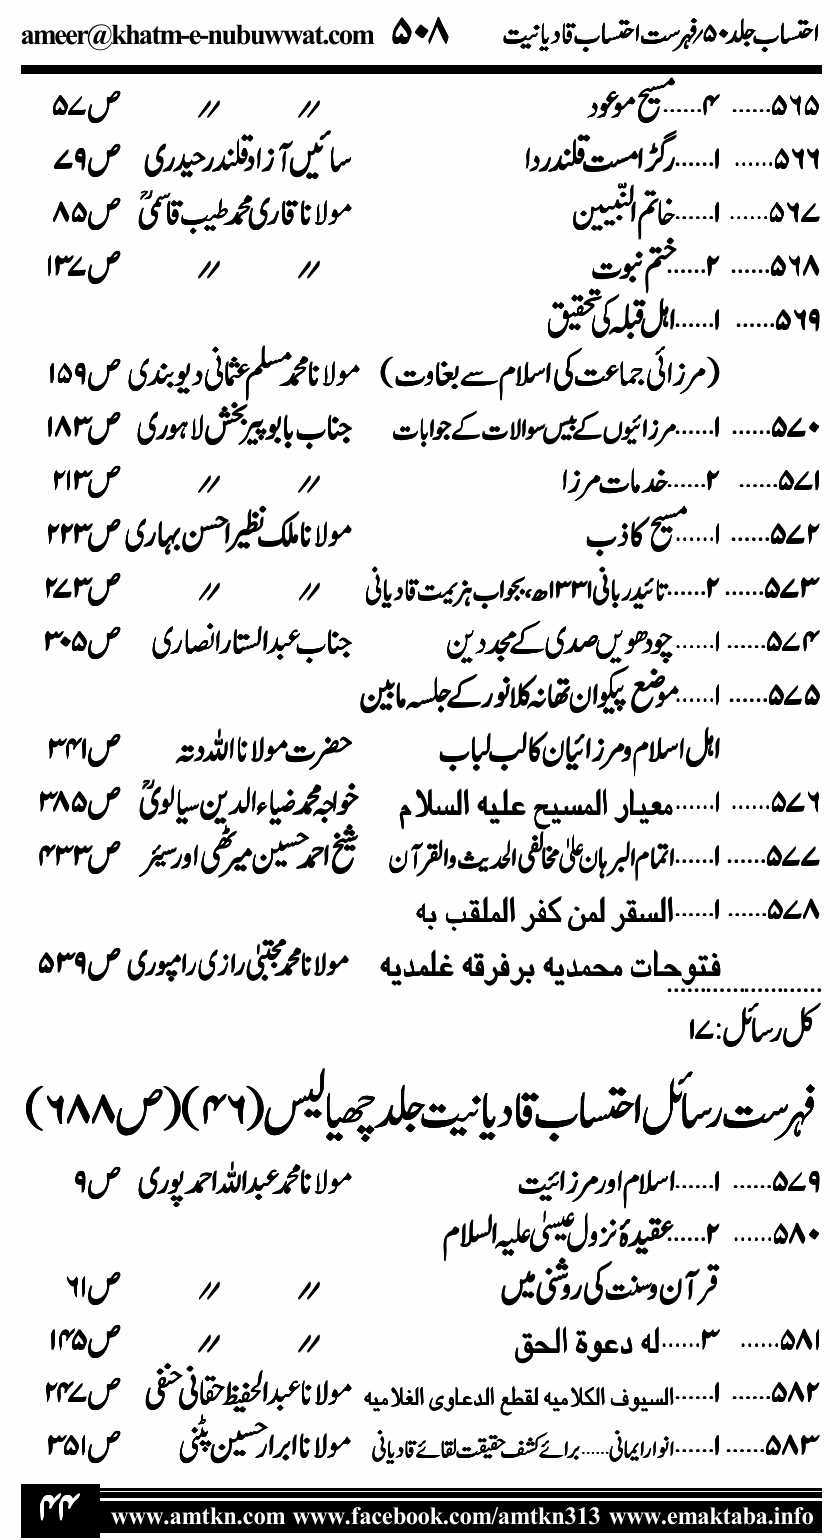 احتساب جلد ۵۰/فہرست احتساب قادیانیت ۵۰۸ ameer@khatm-e-nubuwwat.com
۵۶۵...... ۴......مسیح موعود // // ص۵۷
۵۶۶...... ۱......رگڑا مست قلندر دا سائیں آزاد قلندر حیدری ص۷۹
۵۶۷...... ۱......خاتم النّبیین مولانا قاری محمد طیب قاسمیؒ ص۸۵
۵۶۸...... ۲......ختم نبوت // // ص۱۳۷
۵۶۹...... ۱......اہل قبلہ کی تحقیق
(مرزائی جماعت کی اسلام سے بغاوت) مولانا محمد مسلم عثمانی دیوبندی ص۱۵۹
۵۷۰...... ۱......مرزائیوں کے بیس سوالات کے جوابات جناب بابو پیر بخش لاہوری ص۱۸۳
۵۷۱...... ۲......خدمات مرزا // // ص۲۱۳
۵۷۲...... ۱......مسیح کاذب مولانا ملک نظیر احسن بہاری ص۲۲۳
۵۷۳...... ۲......تائید ربانی ۱۳۳۱ھ، بجواب ہزیمت قادیانی // // ص۲۷۳
۵۷۴...... ۱......چودھویں صدی کے مجددین جناب عبدالستار انصاری ص۳۰۵
۵۷۵...... ۱......موضع پیکوان تھانہ کلانور کے جلسہ مابین
اہل اسلام و مرزائیان کا لب لباب حضرت مولانا اللہ دتہ ص۳۴۱
۵۷۶...... ۱......معیار المسیح علیہ السلام خواجہ محمد ضیاء الدین سیالویؒ ص۳۸۵
۵۷۷...... ۱......اتمام البرہان علیٰ مخالفی الحدیث والقرآن شیخ احمد حسین میرٹھی اورسیئر ص۴۳۳
۵۷۸...... ۱......السقر لمن کفر الملقب بہ
فتوحات محمدیہ برفرقہ غلمدیہ مولانا محمد مجتبیٰ رازی رامپوری ص۵۳۹
کل رسائل: ۱۷
فہرست رسائل احتساب قادیانیت جلد چھیالیس (۴۶) (ص۶۸۸)
۵۷۹...... ۱......اسلام اور مرزائیت مولانا محمد عبداللہ احمد پوری ص۹
۵۸۰...... ۲......عقیدۂ نزول عیسیٰ علیہ السلام
قرآن و سنت کی روشنی میں // // ص۶۱
۵۸۱...... ۳......لہ دعوۃ الحق // // ص۱۴۵
۵۸۲...... ۱......السیوف الکلامیہ لقطع الدعاوی الغلامیہ مولانا عبدالحفیظ حقانی حنفی ص۲۴۷
۵۸۳...... ۱......انوار ایمانی......برائے کشف حقیقت لقائے قادیانی مولانا ابرار حسین پٹنی ص۳۵۱
۴۴ www.amtkn.com www.facebook.com/amtkn313 www.emaktaba.info